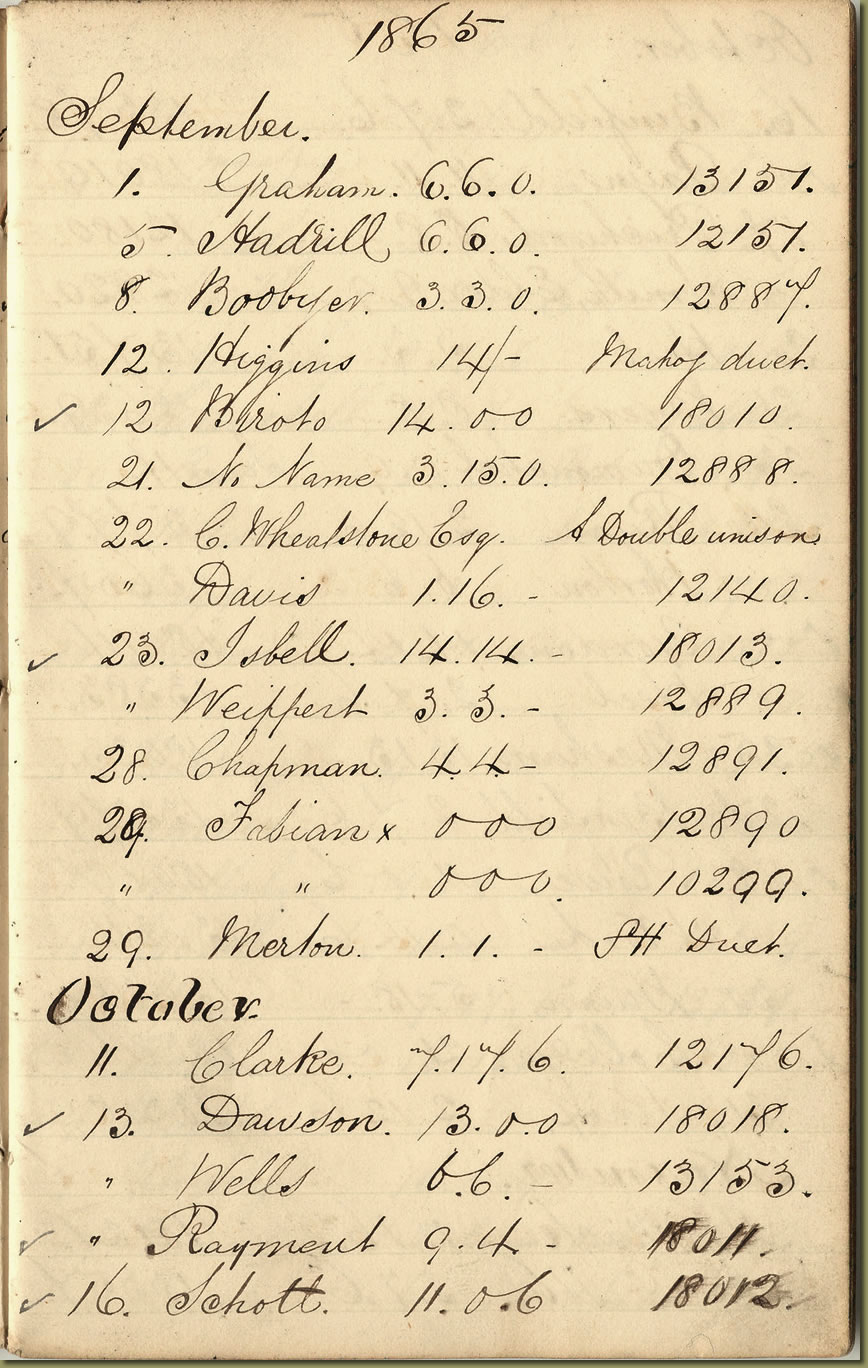 1865
September.
1. Graham. 6. 6. 0. 13151.
5. Hadrill 6. 6. 0. 12151.
8. Boobyer. 3. 3. 0. 12887.
12. Higgins 14/- Mahoy duet.
✓ 12 Biroto 14. 0. 0 18010.
21. No Name 3. 15. 0. 12888.
22. C. Wheatstone Esq. A Double unison.
" Davis 1. 16. - 12140.
✓ 23. Isbell. 14. 14. - 18013.
" Weippert 3. 3. - 12889.
28. Chapman. 4. 4. - 12891.
29. Fabian x 0 0 0 12890
" " 0 0 0. 10299.
29. Merton. 1. 1. - SH Duet.
October.
11. Clarke. 7. 17. 6. 12176.
✓ 13. Dawson. 13. 0. 0 18018.
" Wells 6. 6. - 13153.
✓ " Rayment 9. 4 - 18011.
✓ 16. Schott. 11. 0. 6 18012.